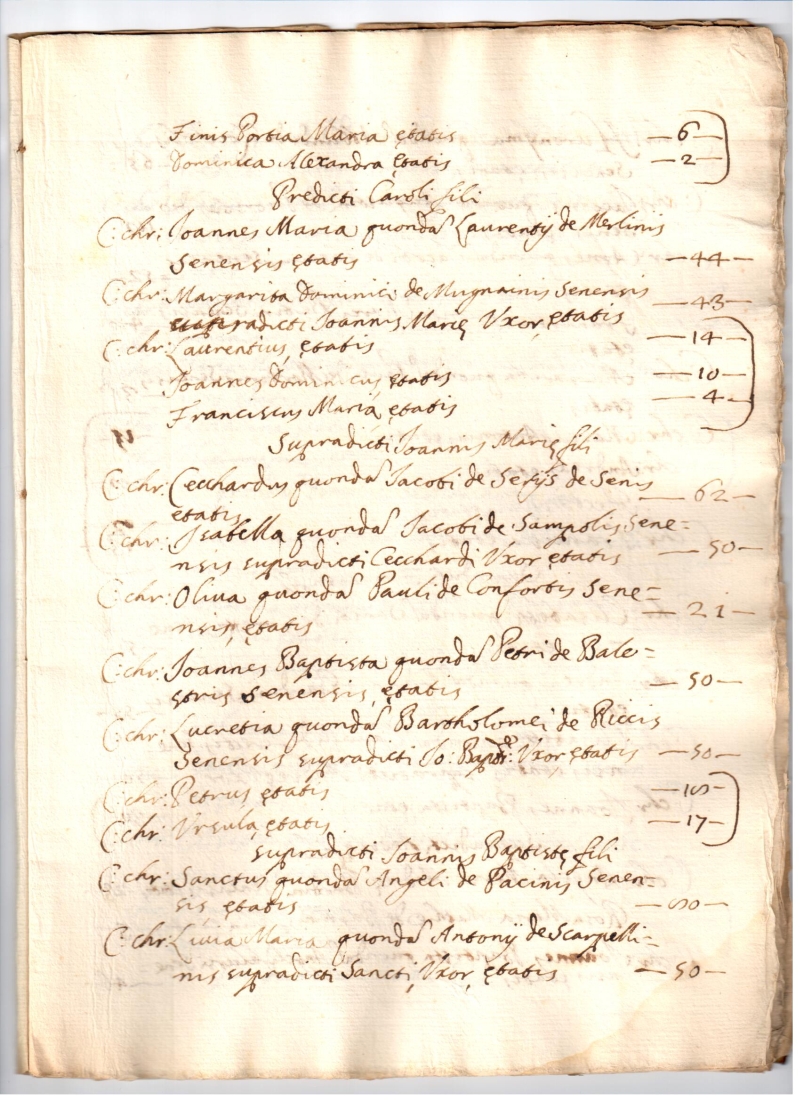 Finis Portia Maria ętatis — 6 —
Dominica Alexandra ętatis — 2 —
Predicti Caroli fili
C: chr: Ioannes Maria quonda Laurentij de Merlinis
Senensis ętatis — 44 —
C: chr: Margarita Dominici de Mugnainis Senensis — 43 —
radicti Ioannis Marię Vxor, ętatis
C: chr: Laurentius, ętatis — 14 —
Ioannes Dominicus ętatis — 10 —
Franciscus Maria ętatis — 4 —
Supradicti Ioannis Marię fili
C: chr: Cecchardus quonda Iacobi de Serijs de Senis — 62 —
ętatis
C: chr: Isabella quonda Iacobi de Sampolis Sene=
nsis supradicti Cecchardi Vxor ętatis — 50 —
C: chr: Oliua quonda Pauli de Confortis Sene= — 21 —
nsis, ętatis
C: chr: Ioannes Baptista quonda Petri de Bale=
stris Senensis, ętatis — 50 —
C: chr: Lucretia quonda Bartholomei de Riccis
Senensis supradicti Io: Bapt: Vxor ętatis — 50 —
C: chr: Petrus ętatis
C: chr: Vrsula, ętatis — 17 —
supradicti Ioannis Baptistę fili
C: chr: Sanctus quonda Angeli de Pacinis Senen=
sis ętatis
C: chr: Liuia Maria quonda Antonij de Scarpelli=
nis supradicti Sancti, Vxor, ętatis — 50 —